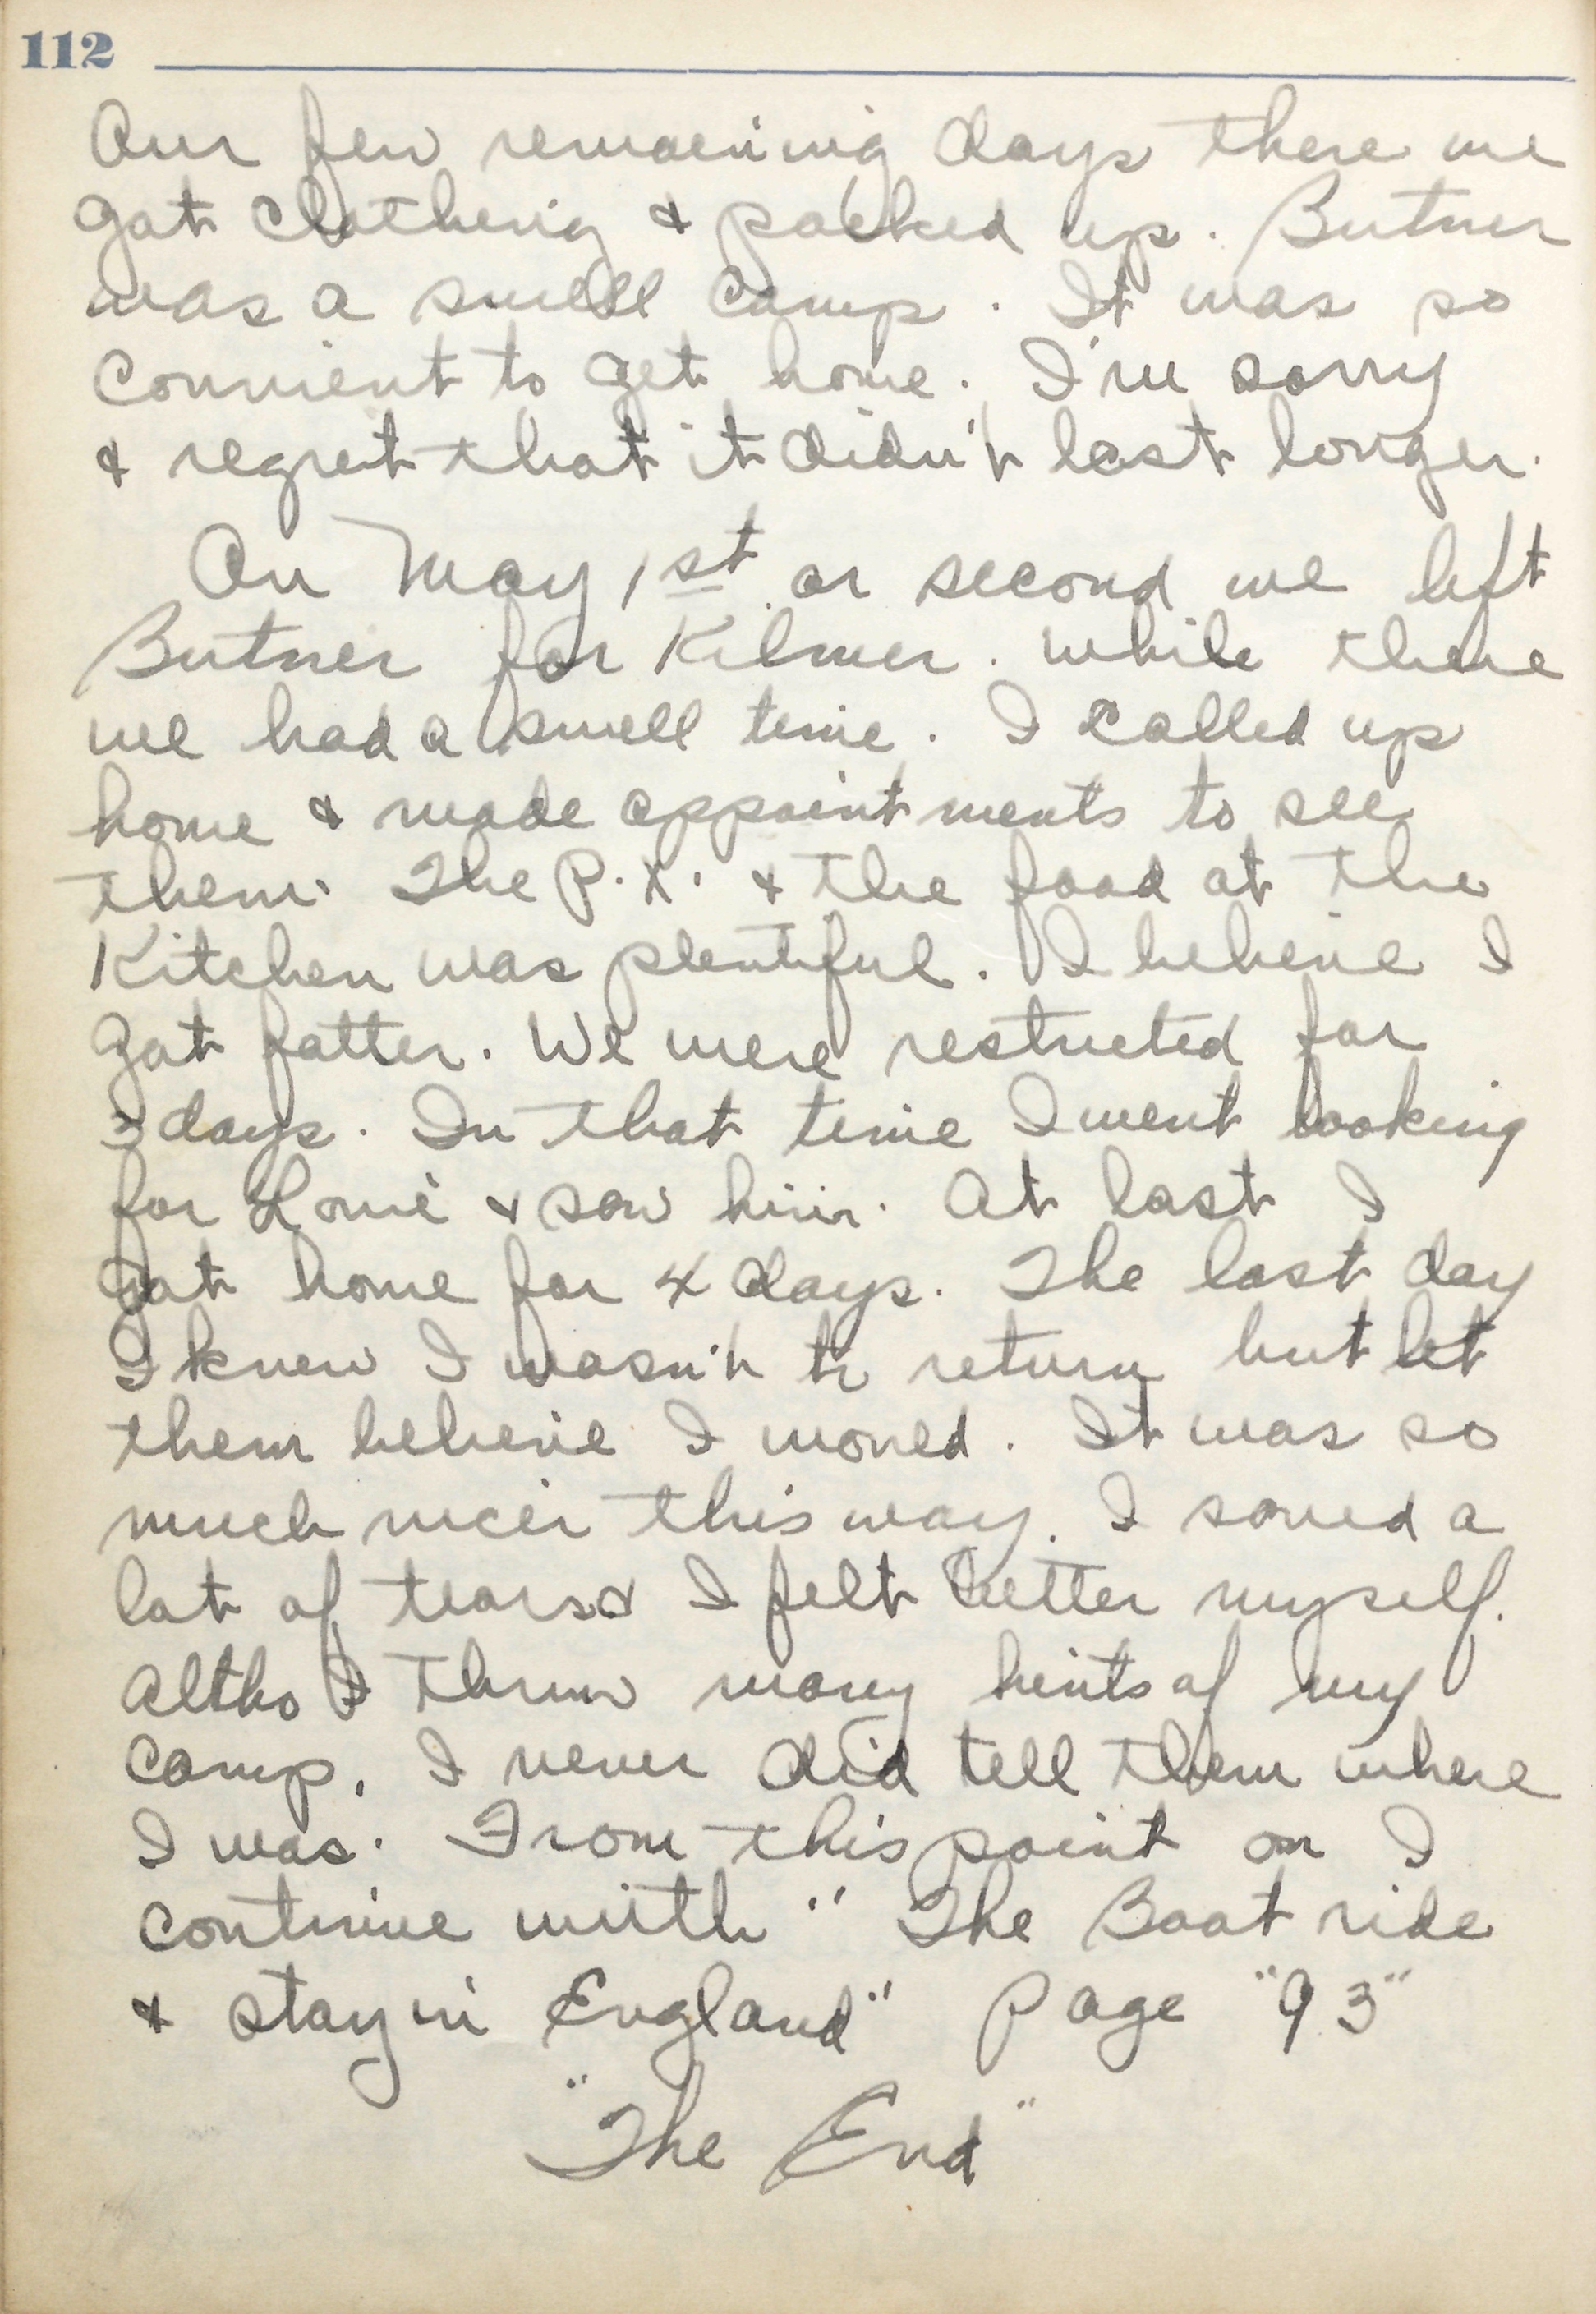 112
Our few remaining days there we
got clothing & packed up. Butner
was a swell camp. It was so
convient to get home. I'm sorry
& regret that it didn't last longer.
On May 1st or second we left
Butner for Kilmer. While there
we had a swell time. I called up
home & made appointments to see
them. The P.X. & the food at the
Kitchen was plentiful. I believe I
got fatter. We were restricted for
3 days. In that time I went looking
for Louie & saw him. At last I
got home for 4 days. The last day
I knew I wasn't to return but let
them believe I would. It was so
much nicer this way. I saved a
lot of tears & I felt better myself.
Altho I threw many hints of my
camp, I never did tell them where
I was. From this point on I
continue with "The Boat ride
& stay in England" Page "93"
"The End"